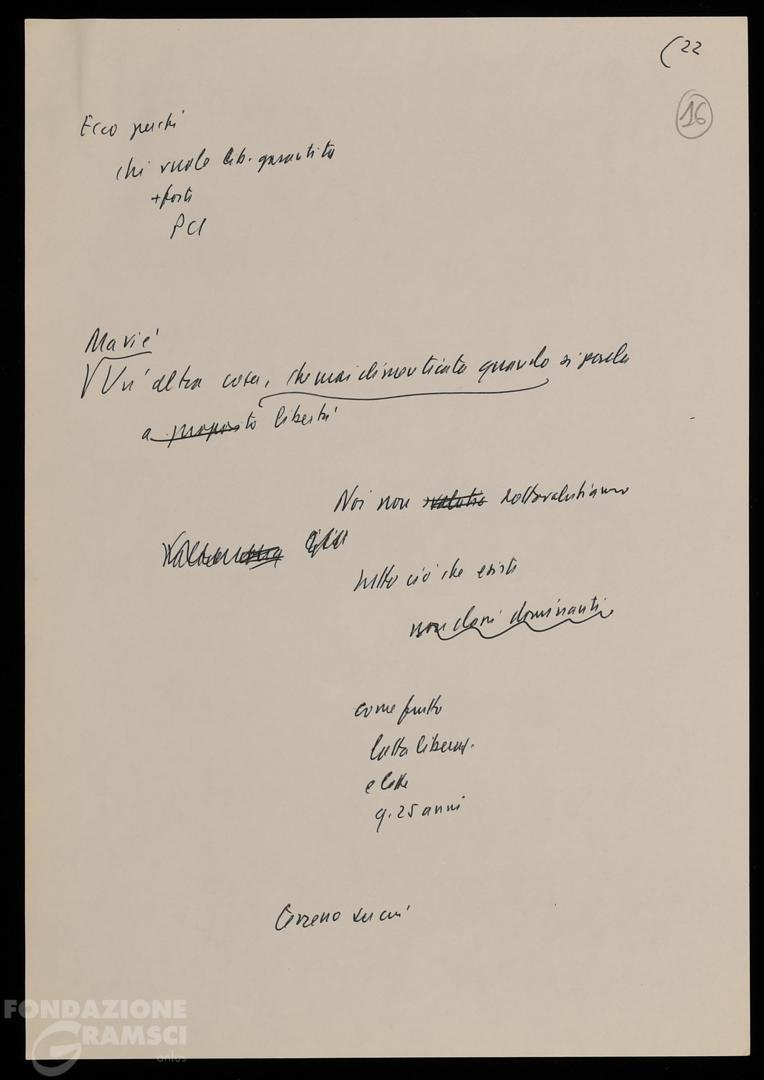 (22
16
Ecco perché
chi vuole lib. garantita
+ forte
PCI
Ma v'è
V Un'altra cosa, che mai dimenticata quando si parla
a proposito libertà
Noi non sottovalutiamo
tutto ciò che esiste
non doni dominanti
come frutto
lotta liberaz.
e lotte
q. 25 anni
terreno su cui
FONDAZIONE
GRAMSCI
onlus